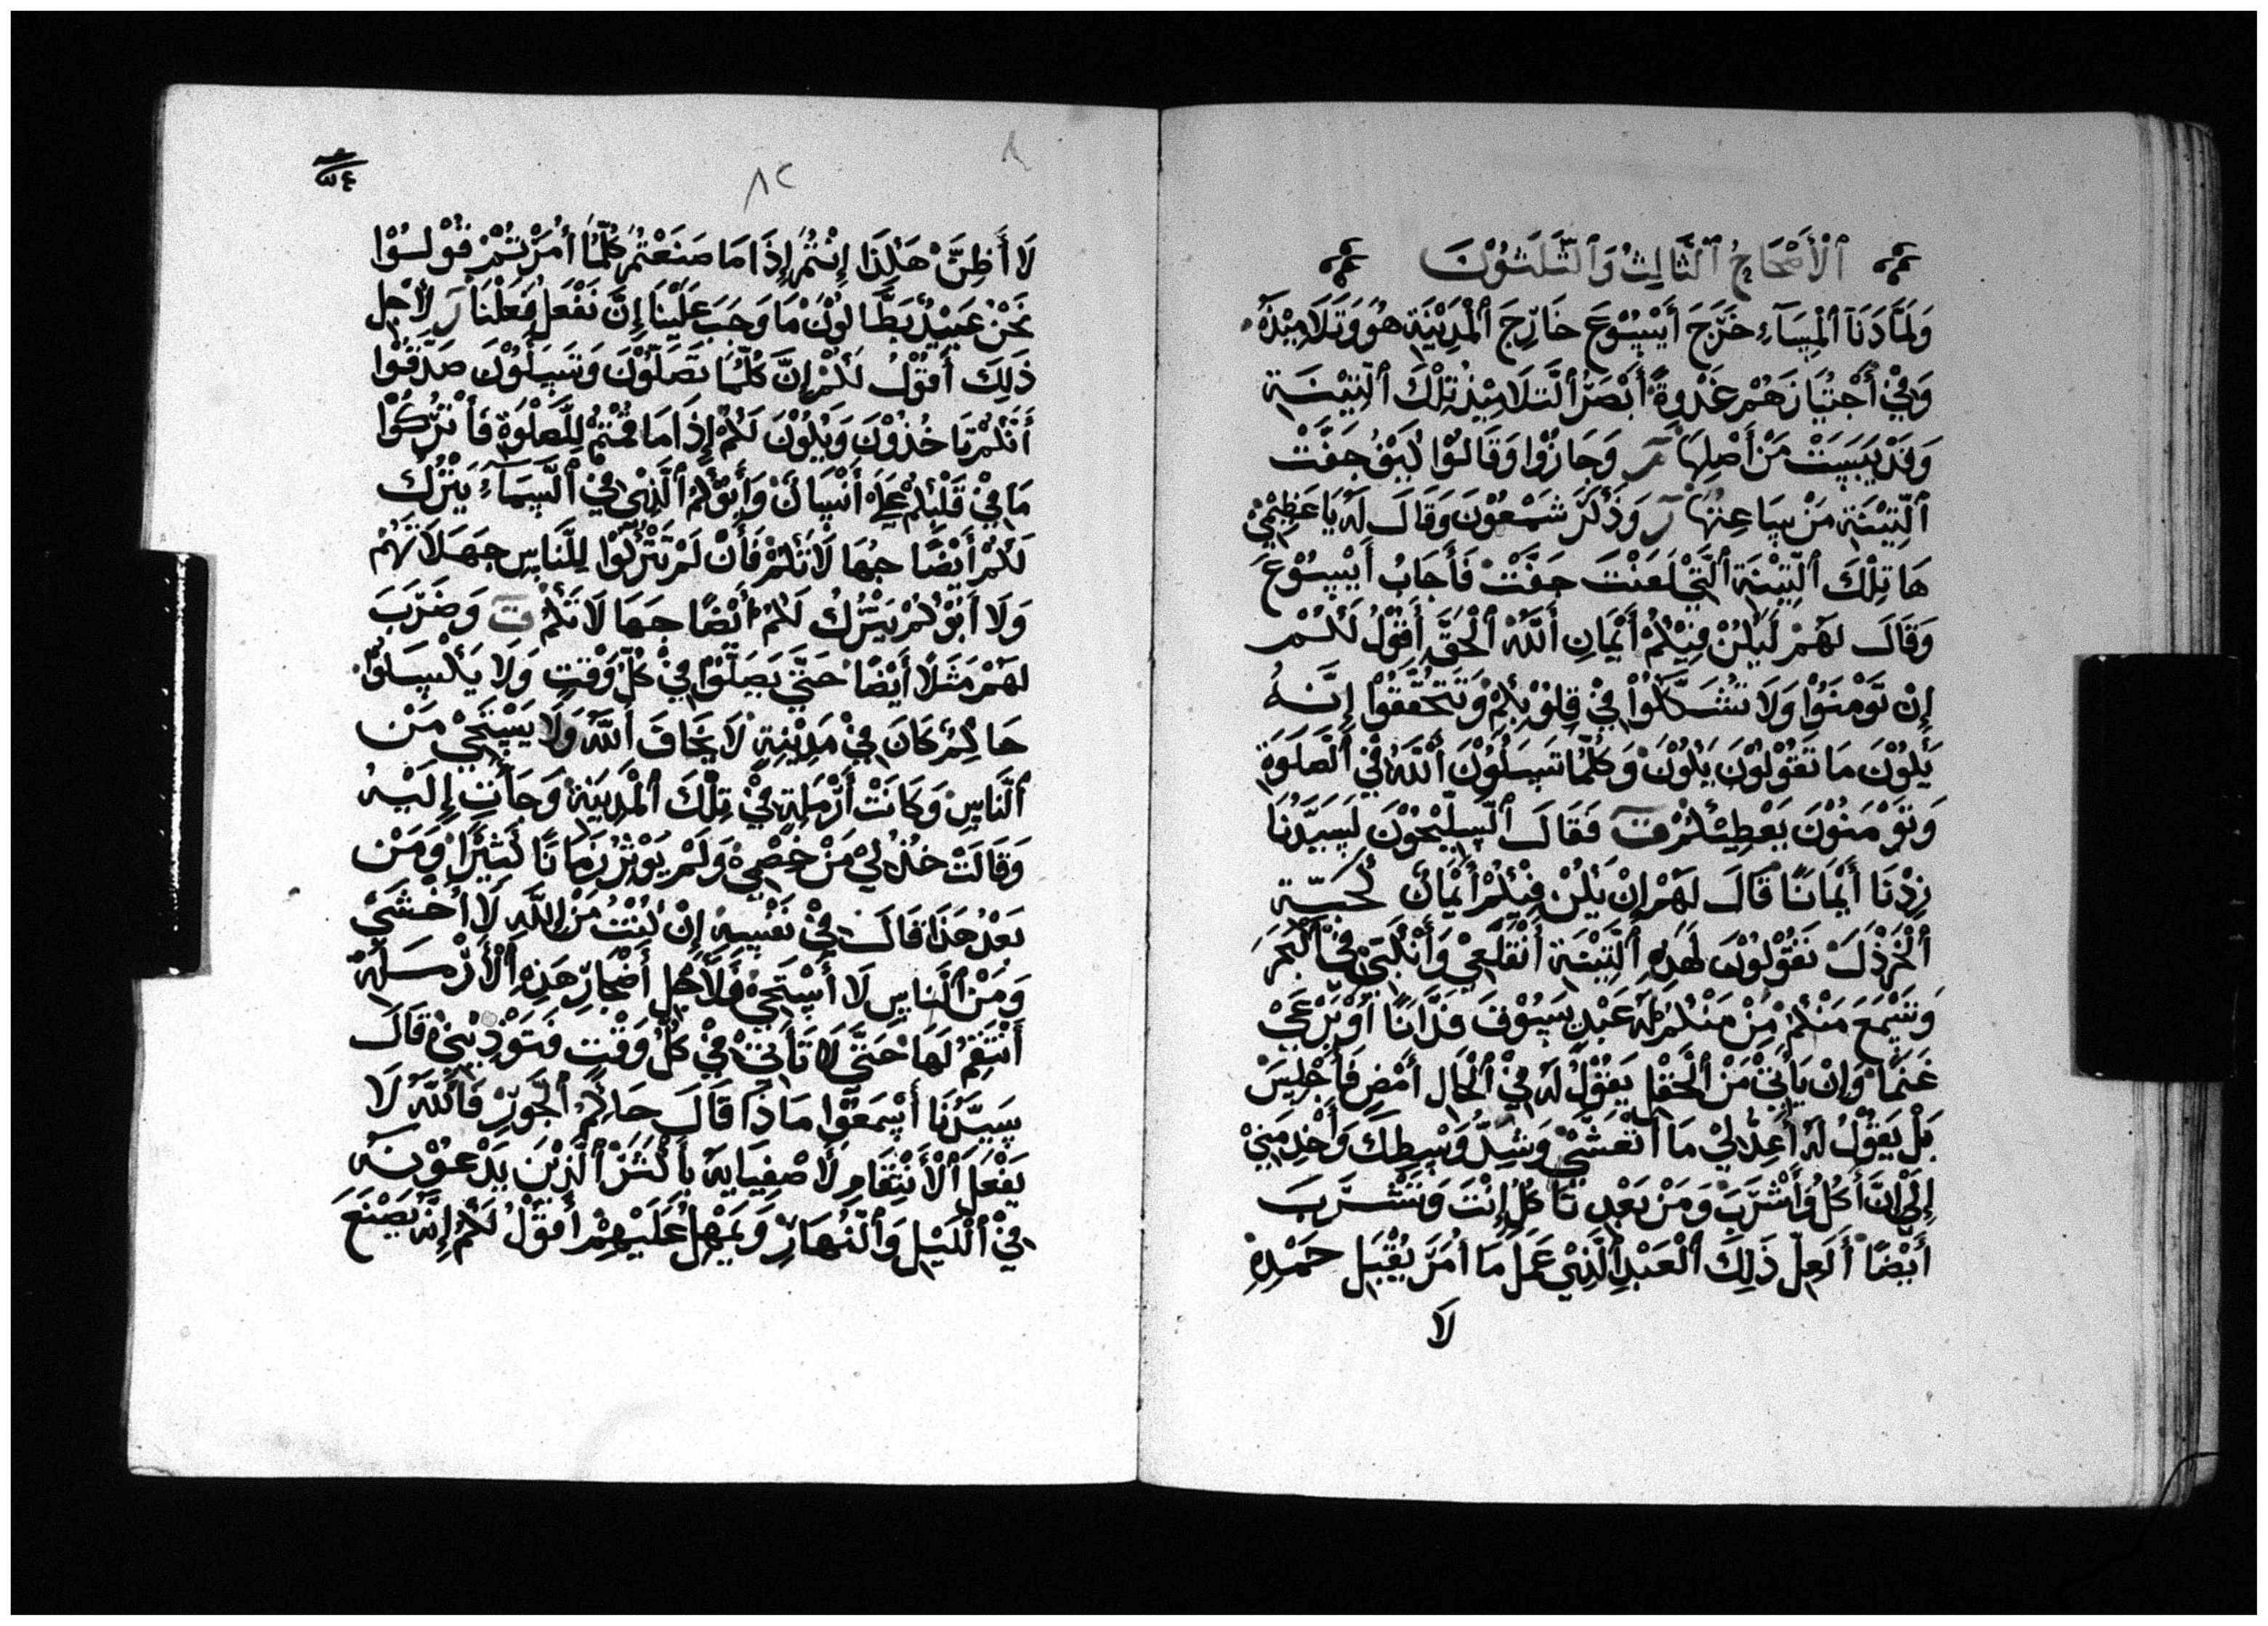 ٱلْأَصْحَاحُ ٱلثَّالِثُ وَٱلثَّلَثُوْنَ
وَلَمَّا دَنَا ٱلْمِسَآءِ خَرَجَ أَيْسُوْعَ خَارِجَ ٱلْمَدِيْنَةِ هُوَ وَتَلَامِيْذَهُ
وَفِيْ أَجْتِيَازَهُمْ غَدْوِةً أَبْصَرُ ٱلتَّلَامِيْذُ تِلْكَ ٱلتِّيْنَة
وَقَدْ يَبَسَتْ مَنْ أَصْلِهَا مر وَجَازُوْا وَقَالُوْا كَيْفُ جَفَّتْ
ٱلتِّيْنَة مَنْ سَاعِتِهَا ر وَذَكَرَ شَمْعُوْنَ وَقَالَ لَهُ يَا عَظِيْمِيْ
هَا تِلْكَ ٱلتِّيْنَة ٱلَّتِيْ لَعَنْتَ جَفَّتْ فَأَجَابُ أَيْسُوْعَ
وَقَالَ لَهَمْ لَيَكُنْ فِيْكُمْ أَيْمَانِ أَللَّهُ ٱلْحَقَّ أَقُوْلُ لَكُمْ
إِنْ تَوْمَنُوْا وَلَا تَشَكَّكُوْا فِيْ قِلُوْبِكُمْ وَتَتَحَقَّقُوْا إِنَّهُ
يَكُوْنَ مَا تَقُوْلُوْنَ يَكُوْنَ وَكُلَّمَا تَسَلُوْنَ أَللَّهُ فِيْ ٱلصَّلَوَةِ
وَتَوْمَنُوْنَ يَعْطِيْكُمْ ق فَقَالَ ٱلسَّلِيْحُوْنَ لَسَيِّدْنَا
زِدْنَا أَيْمَانًا قَالَ لَهَمْ إِنْ يَكُنْ فِيْكُمْ أَيْمَانَ كَحَبَّة
ٱلْخَرْذَلَ تَقُوْلُوْنَ لَهَذِهِ ٱلتِّيْنَة أَنْقَلَعِيْ وَأَنْكَبِّيْ فِيْ ٱلْبَحَرَ
وَتَسْمَعَ مَنْكُمْ مِنْ مَنْكُمْ لَهُ عَبْدٍ يَسُوْقَ فَدَّانًا أَوْ يَرْعَيْ
غَنَمًا وَإِنْ يَأْتِيْ مَنْ ٱلْحَقْلِ يَقُوْلُ لَهُ فِيْ ٱلْحَالِ أَمْضِ فَأَجْلِسَ
بَلْ يَقُوْلُ لَهُ أَعِدْ لِيْ مَا أَتْعَشَّيْ وَشِدِّ وَسْطِكَ وَأَخْدِمَنِيْ
إِلَيْ إِنَّ أَكُلْ وَأَشْرَبَ وَمَنْ بَعْدِ تَاكُلْ إِنْتَ وَتَشْرَبَ
أَيْضًا أَلَعِلّ ذَلِكَ ٱلْعَبْدِ ٱلَّذِيْ عَمَلْ مَا أُمَرَ يَقْبَلِ حَمْدِهِ
لَا
٨٢
لَا أَظِنَّ هَكَذَا إِنْتُمْ إِذَا مَا صَنَعْتُمْ كُلَّمَا أُمَرْتُمْ قُوْلُوْا
نَحْنُ عَبِيْدُ بَطَّالُوْنَ مَا وَجَبَ عَلَيْنَا إِنَّ نَفْعَلُ فَعَلْنَا ر لِأَجْلِ
ذَلِكَ أَقُوْلُ لَكُمْ إِنَّ كُلَّمَا تَصَلُّوْنَ وَتَسَلُوْنَ صَدِّقُوْا
أَنَّكُمْ تَاخُذُوْنَ وَيَكُوْنَ لَكُمْ إِذَا مَا قُمْتُمْ لِلصَّلْوَةِ فَأَتْرُكُوْا
مَا فِيْ قَلْبِكُمْ عَلَي أَنْسَانَ وَأَبُوْكُمْ ٱلَّذِيْ فِيْ ٱلسَّمَآءِ يَتْرُكَ
لَكُمْ أَيْضًا جَهَالَاتَكُمْ فَأَنْ لَمْ تَتْرُكُوْا لِلنَّاسِ جَهَلَاتَهُمْ
وَلَا أَبُوْكُمْ يَتْرُكُ لَكُمْ أَيْضًا جَهَالَاتَكُمْ ق وَضَرَبَ
لَهَمْ مَثَلًا أَيْضًا حَتَّيْ يَصَلُّوْا فِيْ كُلِّ وَقْتٍ وَلَا يَكْسَلُوْا
حَاكِمْ كَانَ فِيْ مَدِيْنِةٍ لَا يَخَافَ أَللَّهُ وَلَا يَسْتَحِيْ مَنْ
ٱلنَّاسِ وَكَانَتْ أَرْمَلِةٍ فِيْ تِلْكَ ٱلْمَدِيْنَةِ وَجَأَتِ إِلَيْهُ
وَقَالَتْ خُذْ لِيْ مَنْ خِصْمِيْ وَلَمْ يَوْثِرْ زَمَانًا كَثِيْرًا وَمَنْ
بَعْدُ هَذَا قَالَ فِيْ نَفْسِهِ إِنْ كُنْتُ مَنْ اللَّهِ لَا أُخْشَيْ
وَمَنْ ٱلنَّاسِ لَا أَسْتَحِيْ فَلِأَجْلِ أَضْجَارِ هَذِهِ ٱلْأَرْمَلَةِ
أَنْتَقِمُ لَهَا حَتَّيْ لَا تَأْتِيْ فِيْ كُلِّ وَقْتٍ فَتَوْذِيْنِيْ قَالَ
سَيِّدْنَا أَسْمَعُوْا مَاذَا قَالَ حَاكِمُ ٱلْجَوْرِ فَاَللَّهُ لَا
يَفْعَلَ ٱلْأَنْتِقَامِ لَأَصْفِيَايِهِ بِأَكْثَرْ ٱلَّذِيْنَ يَدْعُوْنَهُ
فِيْ ٱلْلَيْلِ وَٱلنَّهَارِ وَيَمْهِلُ عَلَيْهِمْ أَقُوْلُ لَكُمْ إِنَّهُ يَصْنَعَ